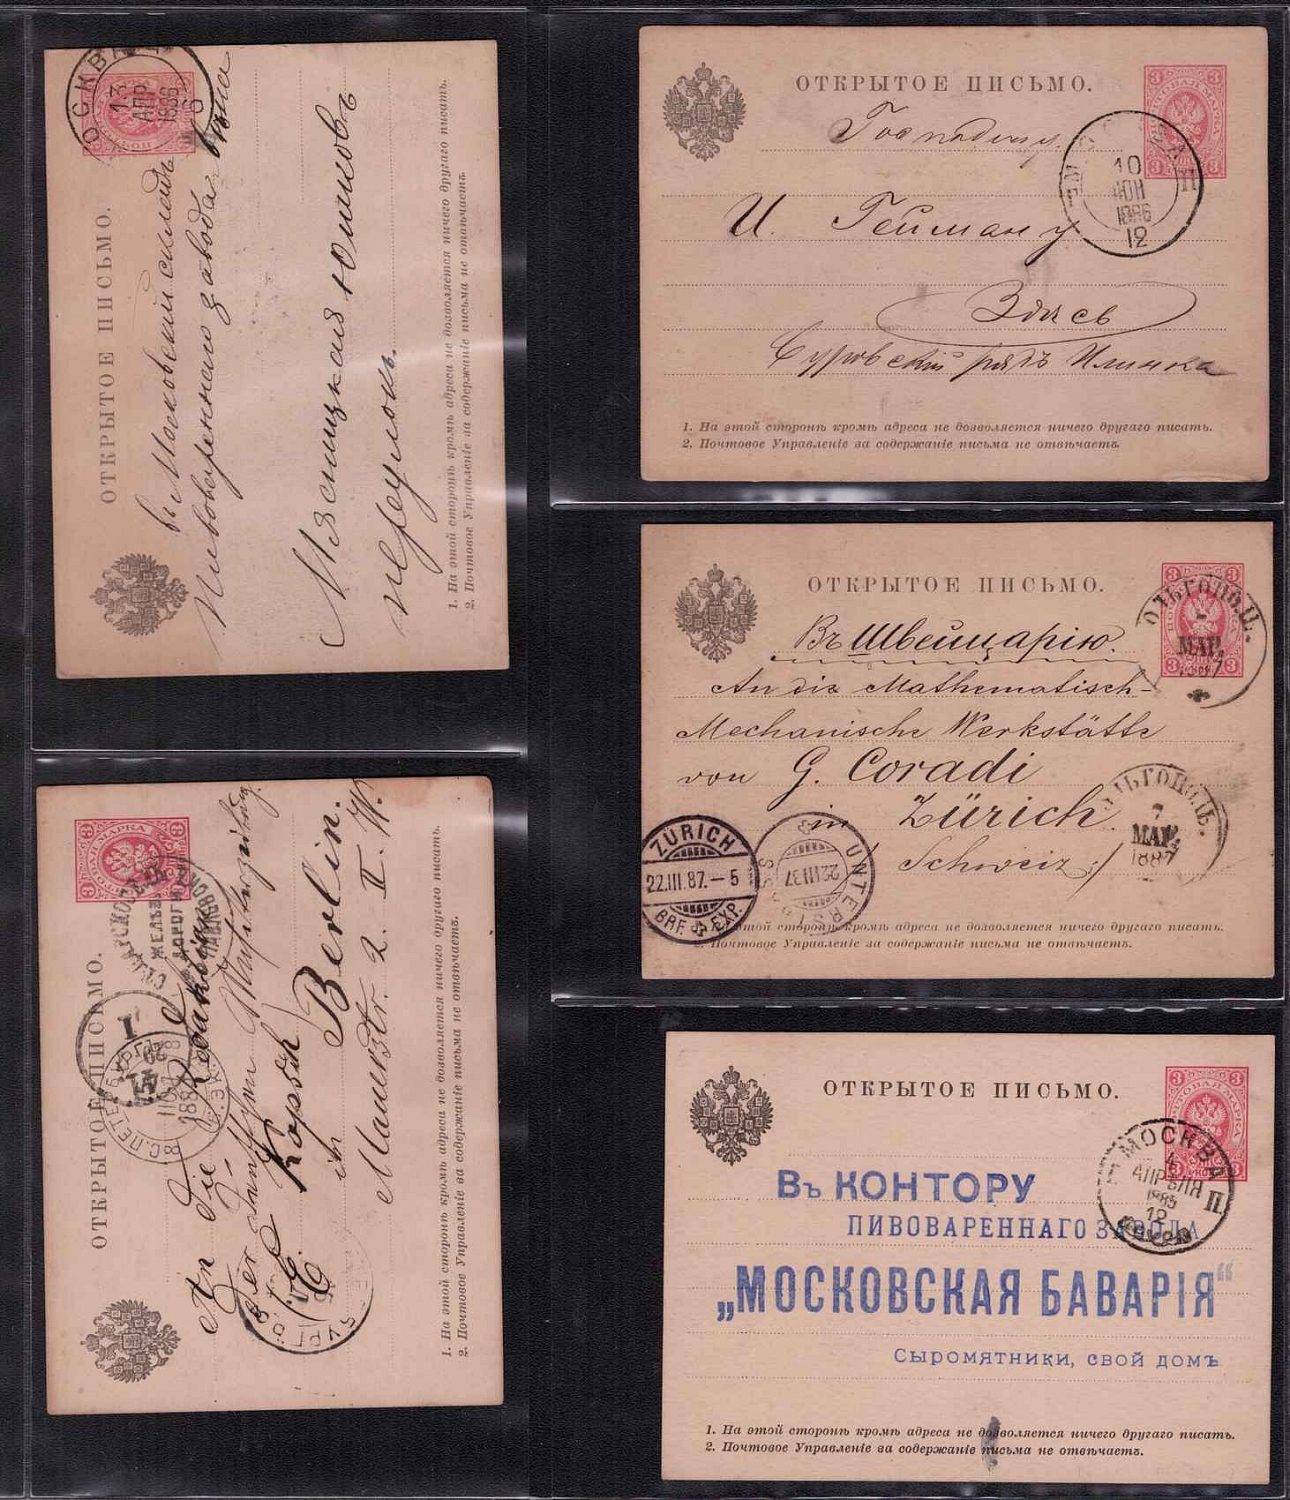 МОСКВА
13
АПР
1886
ОТКРЫТОЕ ПИСЬМО.
въ Московскій складъ
Пивовареннаго завода
Мясницкая Юшковъ
переулокъ.
1. На этой сторонѣ кромѣ адреса не дозволяется ничего другаго писать.
2. Почтовое Управленіе за содержаніе письма не отвѣчаетъ.
ОТКРЫТОЕ ПИСЬМО.
Господину
И. Гейману
Здѣсь
Суровскій рядъ Илинка
10
1886
12
1. На этой сторонѣ кромѣ адреса не дозволяется ничего другаго писать.
2. Почтовое Управленіе за содержаніе письма не отвѣчаетъ.
ОТКРЫТОЕ ПИСЬМО.
Въ Швейцарію.
An die Mathematisch-
Mechanische Werkstätte
von G. Coradi
in Zürich
Schweiz
ОЛЬГОПОЛ.
МАР.
1887
ОЛЬГОПОЛЬ.
7
МАР.
1887
ZÜRICH
22.III.87.–5
BRF. EXP.
UNTERSTRASS
22III87
1. На этой сторонѣ кромѣ адреса не дозволяется ничего другаго писать.
2. Почтовое Управленіе за содержаніе письма не отвѣчаетъ.
ПОЧТОВАЯ МАРКА
ОТКРЫТОЕ ПИСЬМО.
An die Redaktion
der
Kopsch
in Berlin.
Mauerstr. 2. II. W.
С.ПЕТЕРБУРГЪ
1. На этой сторонѣ кромѣ адреса не дозволяется ничего другаго писать.
2. Почтовое Управленіе за содержаніе письма не отвѣчаетъ.
ОТКРЫТОЕ ПИСЬМО.
МОСКВА
4
АПРѢЛЯ
1885
12
Въ КОНТОРУ
ПИВОВАРЕННАГО ЗАВОДА
„МОСКОВСКАЯ БАВАРІЯ“
Сыромятники, свой домъ
1. На этой сторонѣ кромѣ адреса не дозволяется ничего другаго писать.
2. Почтовое Управленіе за содержаніе письма не отвѣчаетъ.